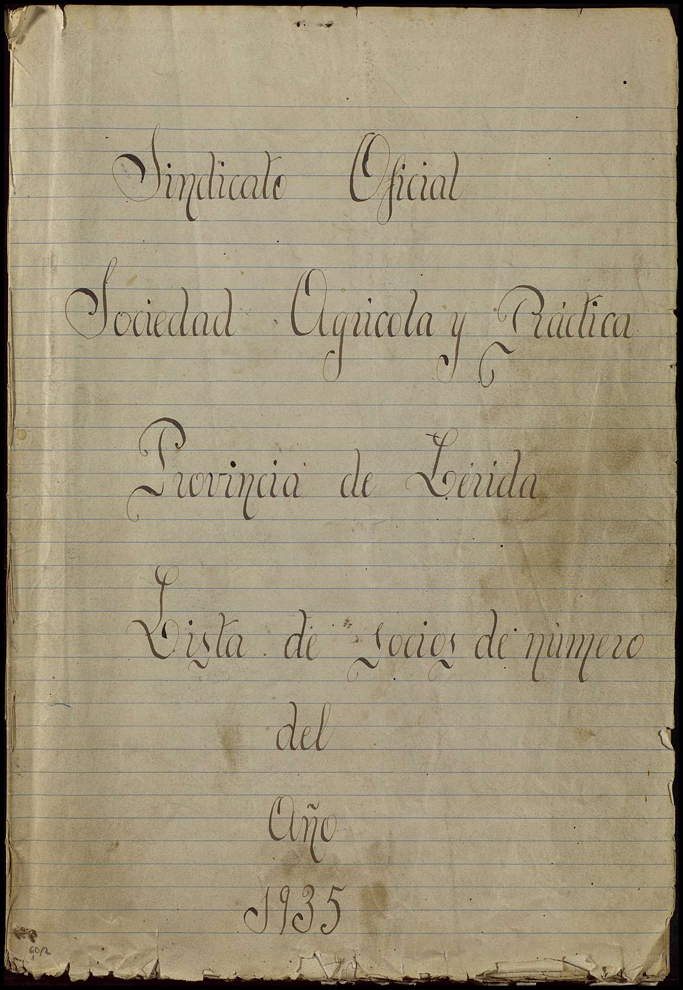 Sindicato Oficial
Sociedad Agricola y Práctica
Provincia de Lérida
Lista de socios de número
del
Año
1935